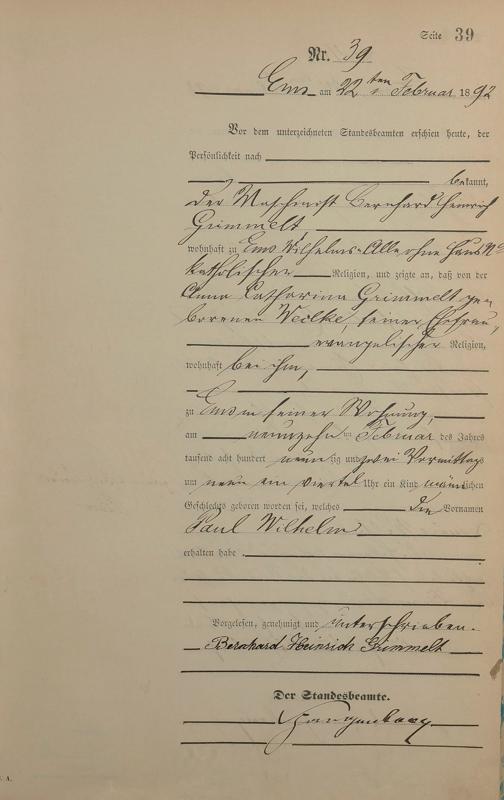 Seite 39
Nr. 39
Ems am 22 ten Februar 1892
Vor dem unterzeichneten Standesbeamten erschien heute, der
Persönlichkeit nach
bekannt,
der Maschinist Bernhard Heinrich
Grimmelt
wohnhaft zu Ems Wilhelms-Allee ohne Haus No
katholischer Religion, und zeigte an, daß von der
Anna Catharina Grimmelt ge-
borenen Weolke, seiner Ehefrau,
evangelischer Religion,
wohnhaft bei ihm,
zu Ems in seiner Wohnung,
am neunzehn ten Februar des Jahres
tausend acht hundert neunzig und zwei Vormittags
um neun ein viertel Uhr ein Kind männlichen
Geschlechts geboren worden sei, welches die Vornamen
Paul Wilhelm
erhalten habe.
Vorgelesen, genehmigt und unterschrieben.
Bernhard Heinrich Grimmelt
Der Standesbeamte.
A.